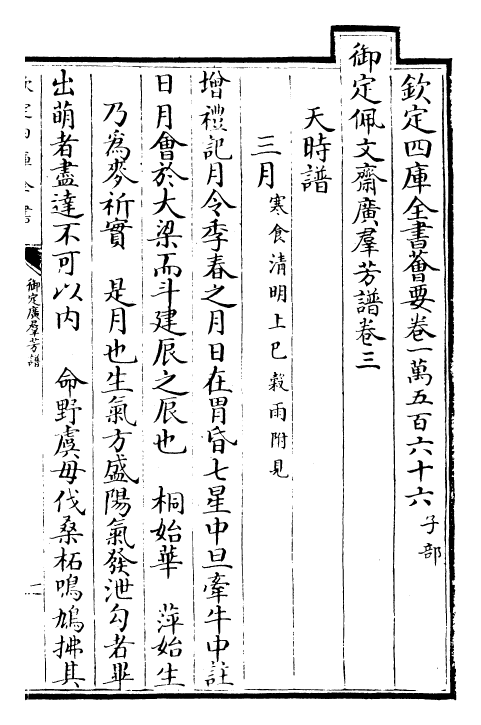 欽定四庫全書薈要卷一萬五百六十六 子部
御定佩文齋廣羣芳譜卷三
天時譜
三月 寒食清明上巳穀雨附見
增禮記月令季春之月日在胃昏七星中旦牽牛中註
日月會於大梁而斗建辰之辰也 桐始華 萍始生
乃爲麥祈實 是月也生氣方盛陽氣發泄勾者畢
出萌者盡達不可以内 命野虞毋伐桑柘鳴鳩拂其
御定廣羣芳譜